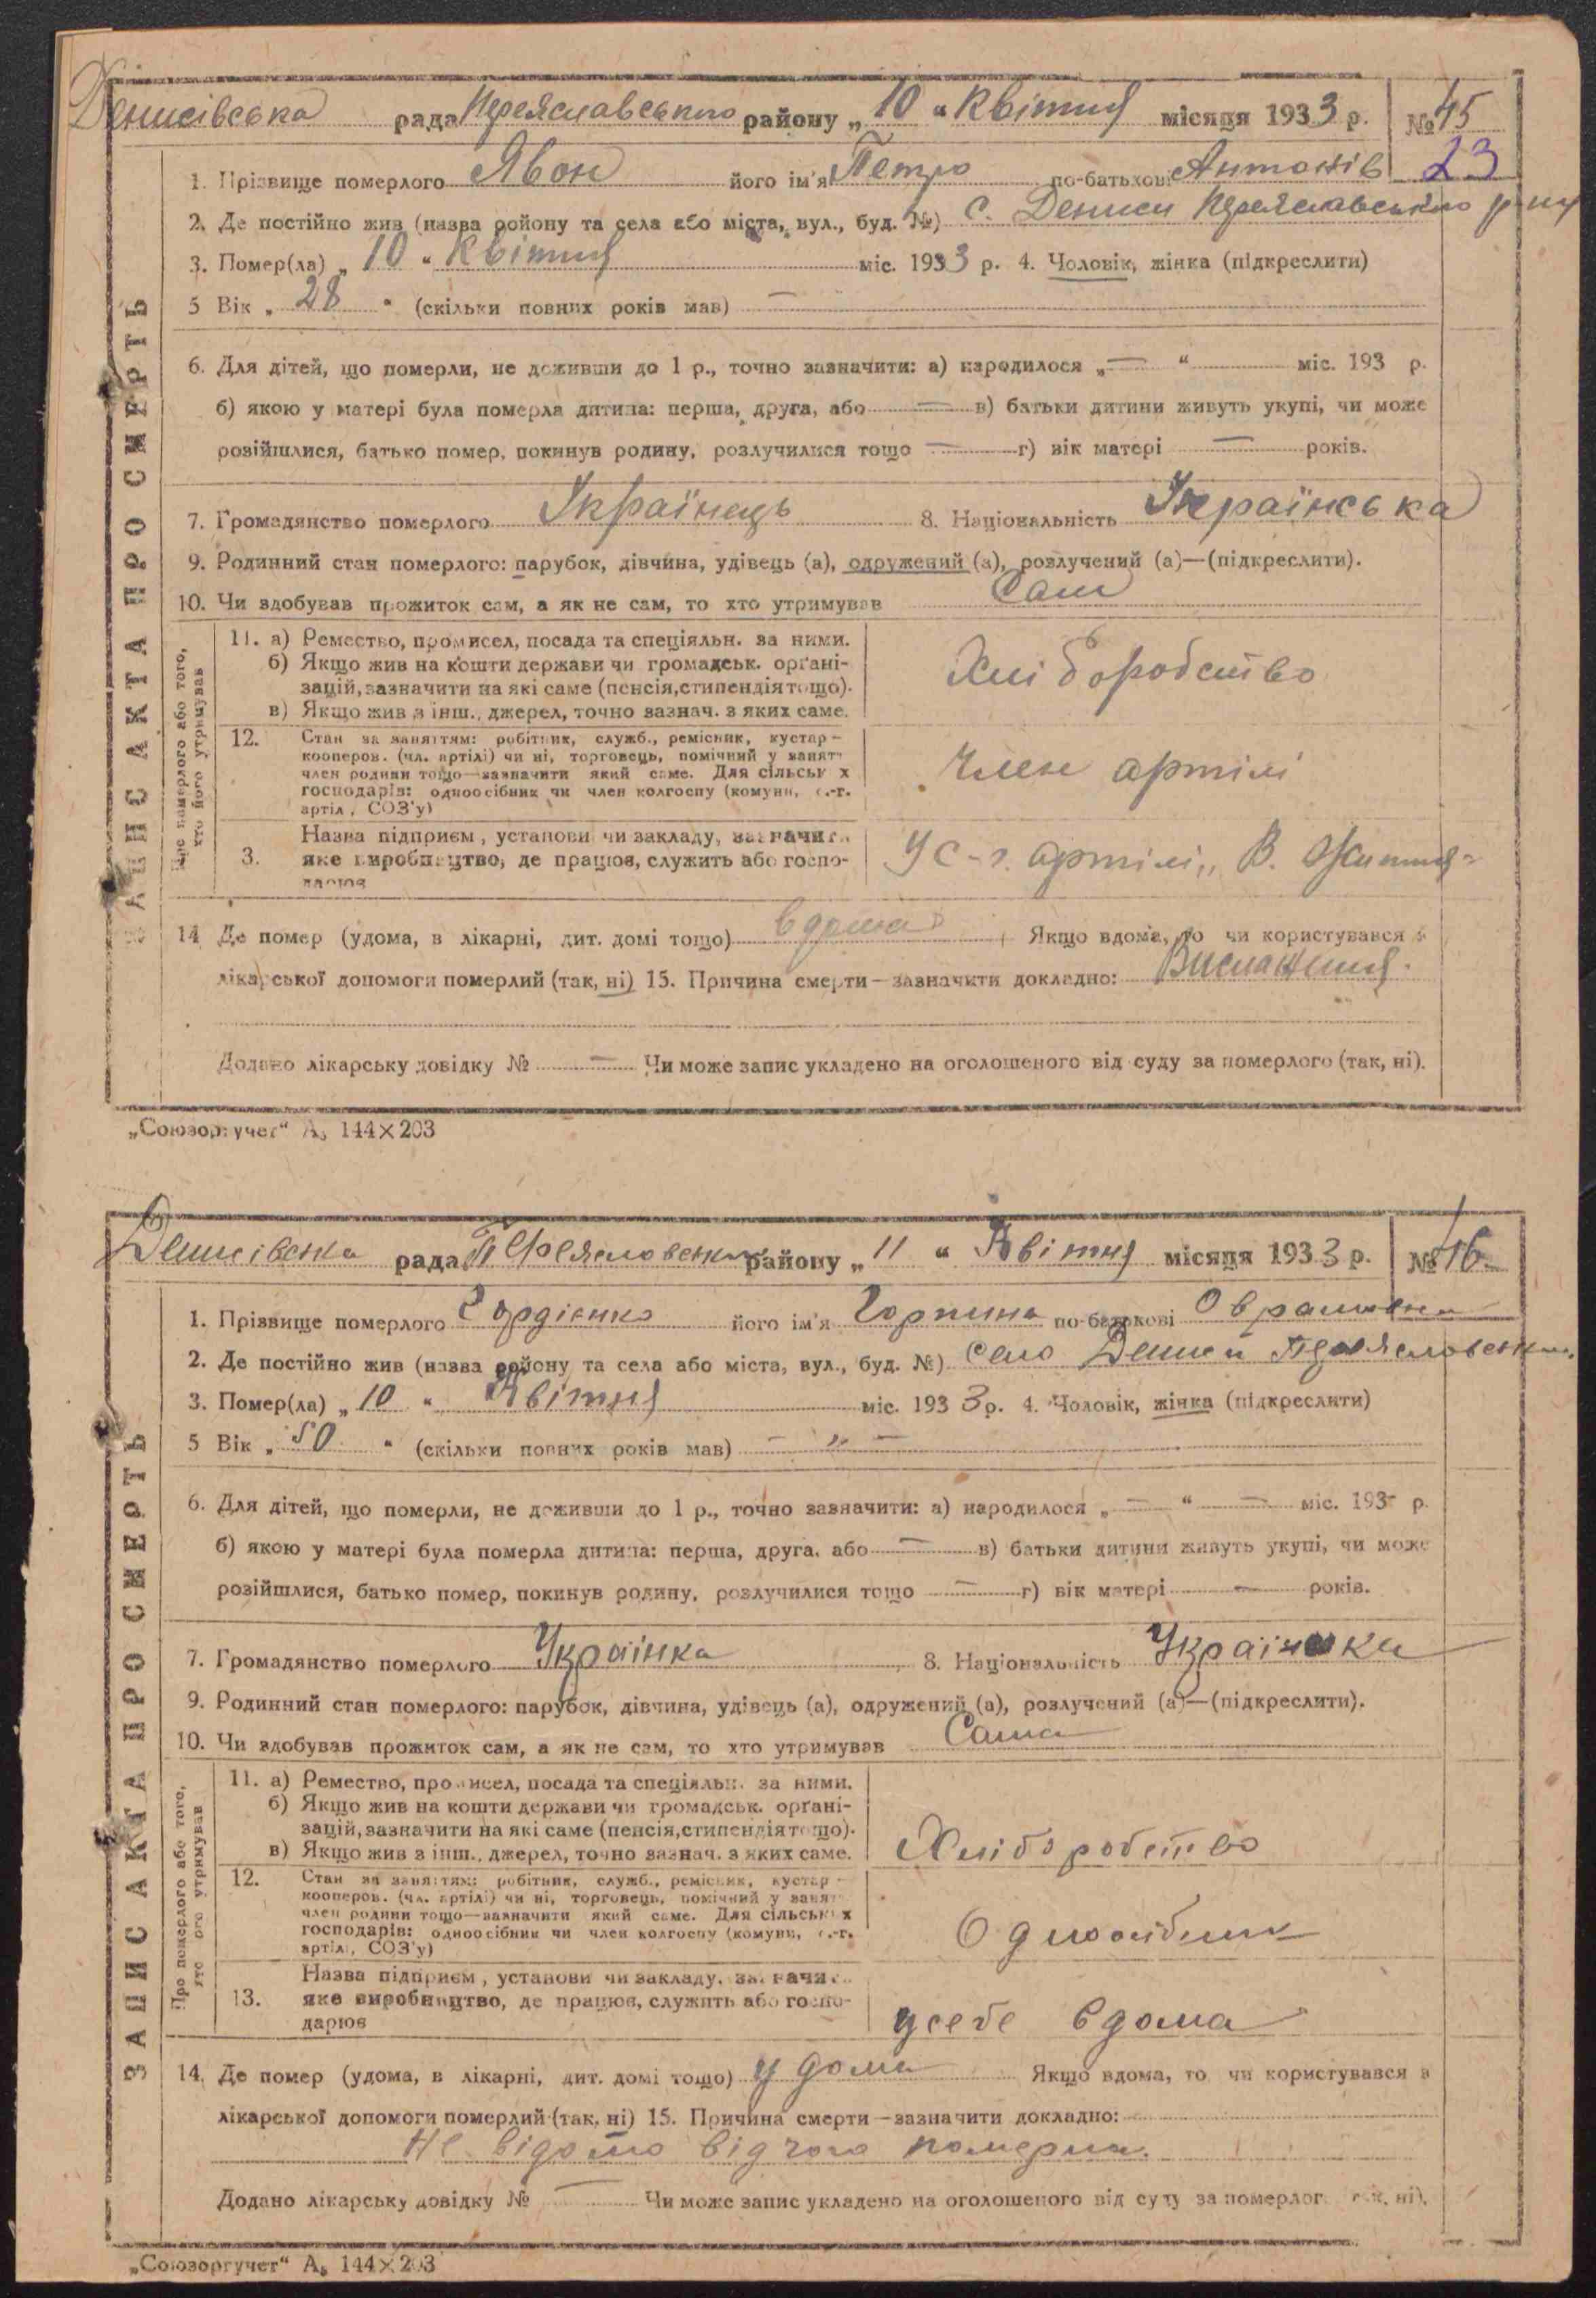 Денисівська рада Переяславського району „ 10 “ Квітня місяця 1933 р. № 45
1. Прізвище померлого Явон його ім'я Петро по-батькові Антонів 23
2. Де постійно жив (назва району та села або міста, вул., буд. №) с. Дениси Переяславського р-ну
3. Помер(ла) „ 10 “ Квітня міс. 1933 р. 4. Чоловік, жінка (підкреслити)
5 Вік „ 28 “ (скільки повних років мав) —
6. Для дітей, що померли, не доживши до 1 р., точно зазначити: а) народилося „ — “ міс. 193 р.
б) якою у матері була померла дитина: перша, друга, або — в) батьки дитини живуть укупі, чи може
розійшлися, батько помер, покинув родину, розлучилися тощо — г) вік матері — років.
7. Громадянство померлого Українець 8. Національність Українська
9. Родинний стан померлого: парубок, дівчина, удівець (а), одружений (а), розлучений (а)—(підкреслити).
10. Чи здобував прожиток сам, а як не сам, то хто утримував Сам
ЗАПИС АКТА ПРО СМЕРТЬ
Про померлого або того, хто його утримував
11. а) Ремество, промисел, посада та спеціяльн. за ними.
б) Якщо жив на кошти держави чи громадськ. орґані-
зацій, зазначити на які саме (пенсія, стипендія тощо).
в) Якщо жив з інш., джерел, точно зазнач. з яких саме.
Хліборобство
12. Стан за заняттям: робітник, служб., ремісник, кустар —
кооперов. (чл. артілі) чи ні, торговець, помічний у занят
член родини тощо—зазначити який саме. Для сільськ х
господарів: одноосібник чи член колгоспу (комуни, с.-г.
артіл , СОЗ'у)
Член артілі
3. Назва підприєм , установи чи закладу, зазначит
яке виробництво, де працюв, служить або госпо-
дарюв
У с-г. артілі „ В. Життя
14 Де помер (удома, в лікарні, дит. домі тощо) вдома Якщо вдома, то чи користувався з
лікарської допомоги померлий (так, ні) 15. Причина смерти — зазначити докладно: Виснаження.
Додано лікарську довідку № — Чи може запис укладено на оголошеного від суду за померлого (так, ні).
„Союзоргучет“ А₅ 144×203
Денисівська рада Переяславського району „ 11 “ Квітня місяця 1933 р. № 46
1. Прізвище померлого Гордієнко його ім'я Горпина по-батькові Оврамовна
2. Де постійно жив (назва району та села або міста, вул., буд. №) село Дениси Переяславського
3. Помер(ла) „ 10 “ Квітня міс. 1933 р. 4. Чоловік, жінка (підкреслити)
5 Вік „ 50 “ (скільки повних років мав) — „ —
6. Для дітей, що померли, не доживши до 1 р., точно зазначити: а) народилося „ — “ — міс. 193- р.
б) якою у матері була померла дитина: перша, друга, або — в) батьки дитини живуть укупі, чи може
розійшлися, батько помер, покинув родину, розлучилися тощо — г) вік матері — років.
7. Громадянство померлого Українка 8. Національність Українка
9. Родинний стан померлого: парубок, дівчина, удівець (а), одружений (а), розлучений (а)—(підкреслити).
10. Чи здобував прожиток сам, а як не сам, то хто утримував Сама
ЗАПИС АКТА ПРО СМЕРТЬ
Про померлого або того, хто його утримував
11. а) Ремество, промисел, посада та спеціяльн. за ними.
б) Якщо жив на кошти держави чи громадськ. орґані-
зацій, зазначити на які саме (пенсія, стипендія тощо).
в) Якщо жив з інш., джерел, точно зазнач. з яких саме.
Хліборобство
12. Стан за заняттям: робітник, служб., ремісник, кустар —
кооперов. (чл. артілі) чи ні, торговець, помічний у занят
член родини тощо—зазначити який саме. Для сільськ х
господарів: одноосібник чи член колгоспу (комуни, с.-г.
артіл , СОЗ'у)
Одноосібник
13. Назва підприєм , установи чи закладу, зазначит
яке виробництво, де працюв, служить або госпо-
дарюв
у себе вдома
14. Де помер (удома, в лікарні, дит. домі тощо) у дома Якщо вдома, то чи користувався з
лікарської допомоги померлий (так, ні) 15. Причина смерти — зазначити докладно:
Не відомо від чого померла.
Додано лікарську довідку № — Чи може запис укладено на оголошеного від суду за померлог так, ні).
„Союзоргучет“ А₅ 144×203